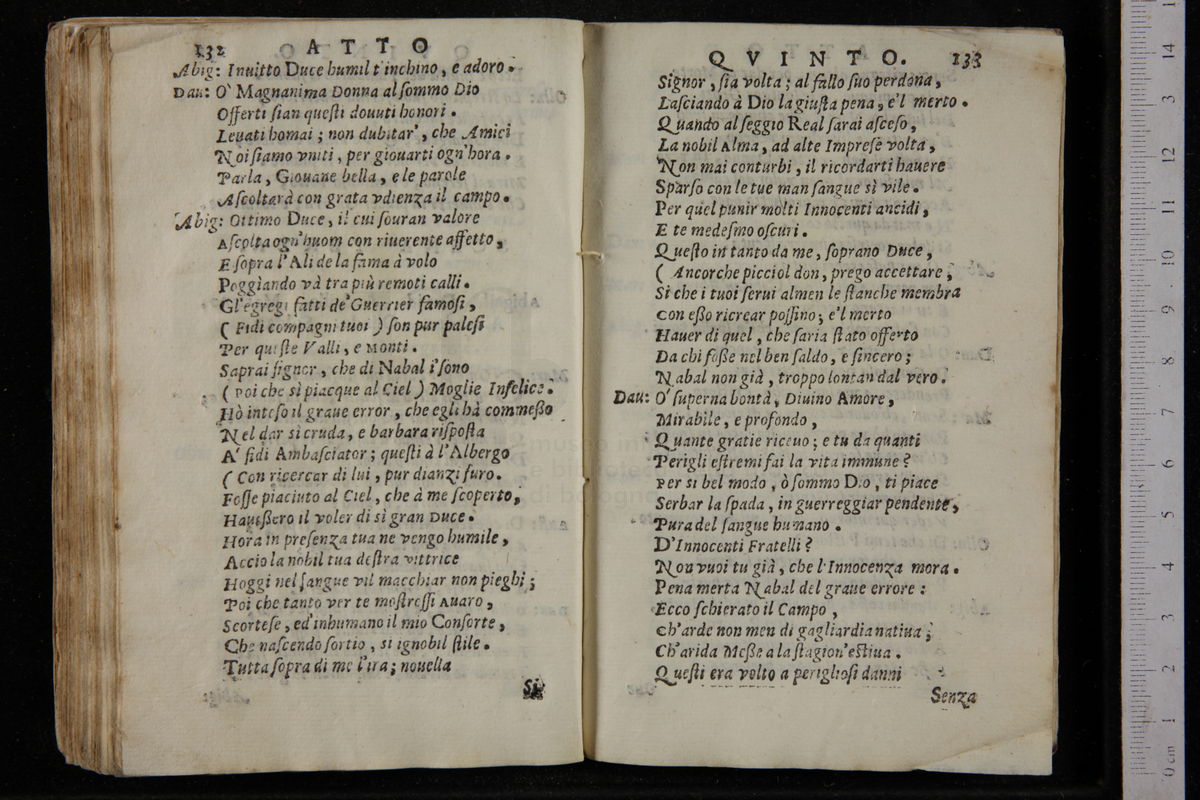 132 ATTO
Abig: Inuitto Duce humil t'inchino, e adoro.
Dau: O' Magnanima Donna al sommo Dio
Offerti sian questi douuti honori.
Leuati homai; non dubitar', che Amici
Noi siamo vniti, per giouarti ogn'hora.
Parla, Giouane bella, e le parole
Ascoltarà con grata vdienza il campo.
Abig: Ottimo Duce, il cui souran valore
Ascolta ogn'huom con riuerente affetto,
E sopra l'Ali de la fama à volo
Poggiando và tra più remoti calli.
Gl'egregi fatti de' Guerrier famosi,
( Fidi compagni tuoi ) son pur palesi
Per queste Valli, e Monti.
Saprai signor, che di Nabal i' sono
( Poi che sì piacque al Ciel ) Moglie Infelice.
Hò inteso il graue error, che egli hà commesso
Nel dar sì cruda, e barbara risposta
A' fidi Ambasciator; questi à l'Albergo
( Con ricercar di lui, pur dianzi furo.
Fosse piaciuto al Ciel, che à me scoperto,
Hauessero il voler di sì gran Duce.
Hora in presenza tua ne vengo humile,
Accio la nobil tua destra vittrice
Hoggi nel sangue vil macchiar non pieghi;
Poi che tanto ver te mostressi Auaro,
Scortese, ed'inhumano il mio Consorte,
Che nascendo sortio, si ignobil stile.
Tutta sopra di me l'ira; nouella
Si
QVINTO. 133
Signor, sia volta; al fallo suo perdona,
Lasciando à Dio la giusta pena, e'l merto.
Quando al seggio Real sarai asceso,
La nobil Alma, ad alte Imprese volta,
Non mai conturbi, il ricordarti hauere
Sparso con le tue man sangue sì vile.
Per quel punir molti Innocenti ancidi,
E te medesmo oscuri.
Questo in tanto da me, soprano Duce,
( Ancorche picciol don, prego accettare,
Si che i tuoi serui almen le stanche membra
Con esso ricrear possino; e'l merto
Hauer di quel, che saria stato offerto
Da chi fosse nel ben saldo, e sincero;
Nabal non già, troppo lontan dal vero.
Dau: O' superna bontà, Diuino Amore,
Mirabile, e profondo,
Quante gratie riceuo; e tu da quanti
Perigli estremi fai la vita immune?
Per si bel modo, ò sommo Dio, ti piace
Serbar la spada, in guerreggiar pendente,
Pura del sangue humano.
D'Innocenti Fratelli?
Non vuoi tu già, che l'Innocenza mora.
Pena merta Nabal del graue errore:
Ecco schierato il Campo,
Ch'arde non men di gagliardia natiua;
Ch'arida Messe a la stagion' estiua.
Questi era volto a perigliosi danni
Senza